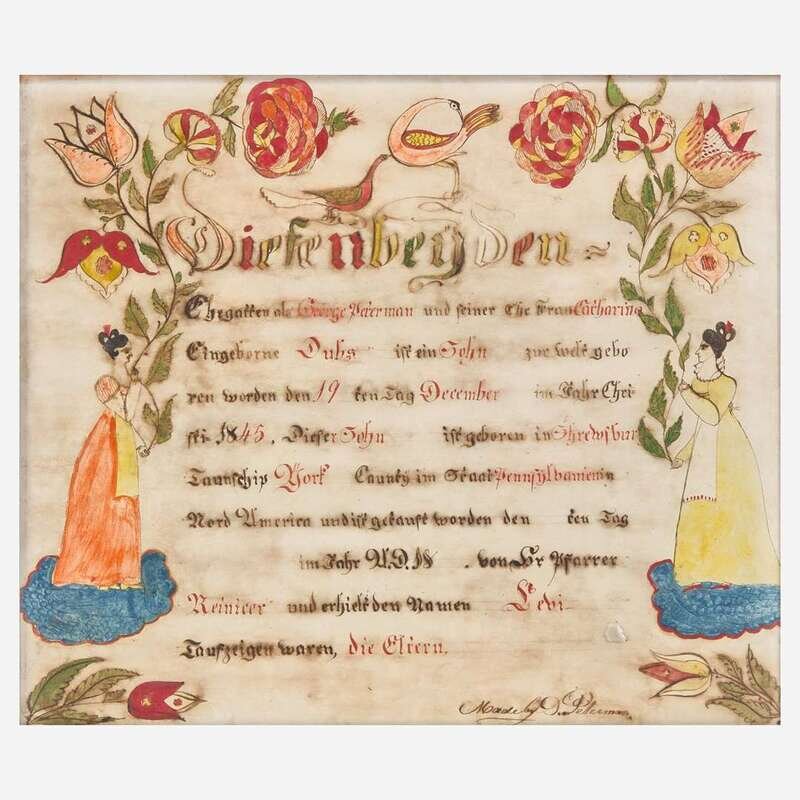 Diesenbeyden =
Ehegatten als George Peterman und seiner Ehe Frau Catharina
Eingeborne Duhs ist ein Sohn zur welt gebo
ren worden den 19 ten Tag December im Jahr Chri
sti 1845. Dieser Sohn ist geboren in Shrewsbur
Taunschip York County im Staat Pennsylvanien in
Nord America und ist getauft worden den ten Tag
im Jahr A.D. 18 . von Hr Pfarrer
Reinicer und erhielt den Namen Levi
Taufzeigen waren, die Eltern.
Made by D. Peterman.